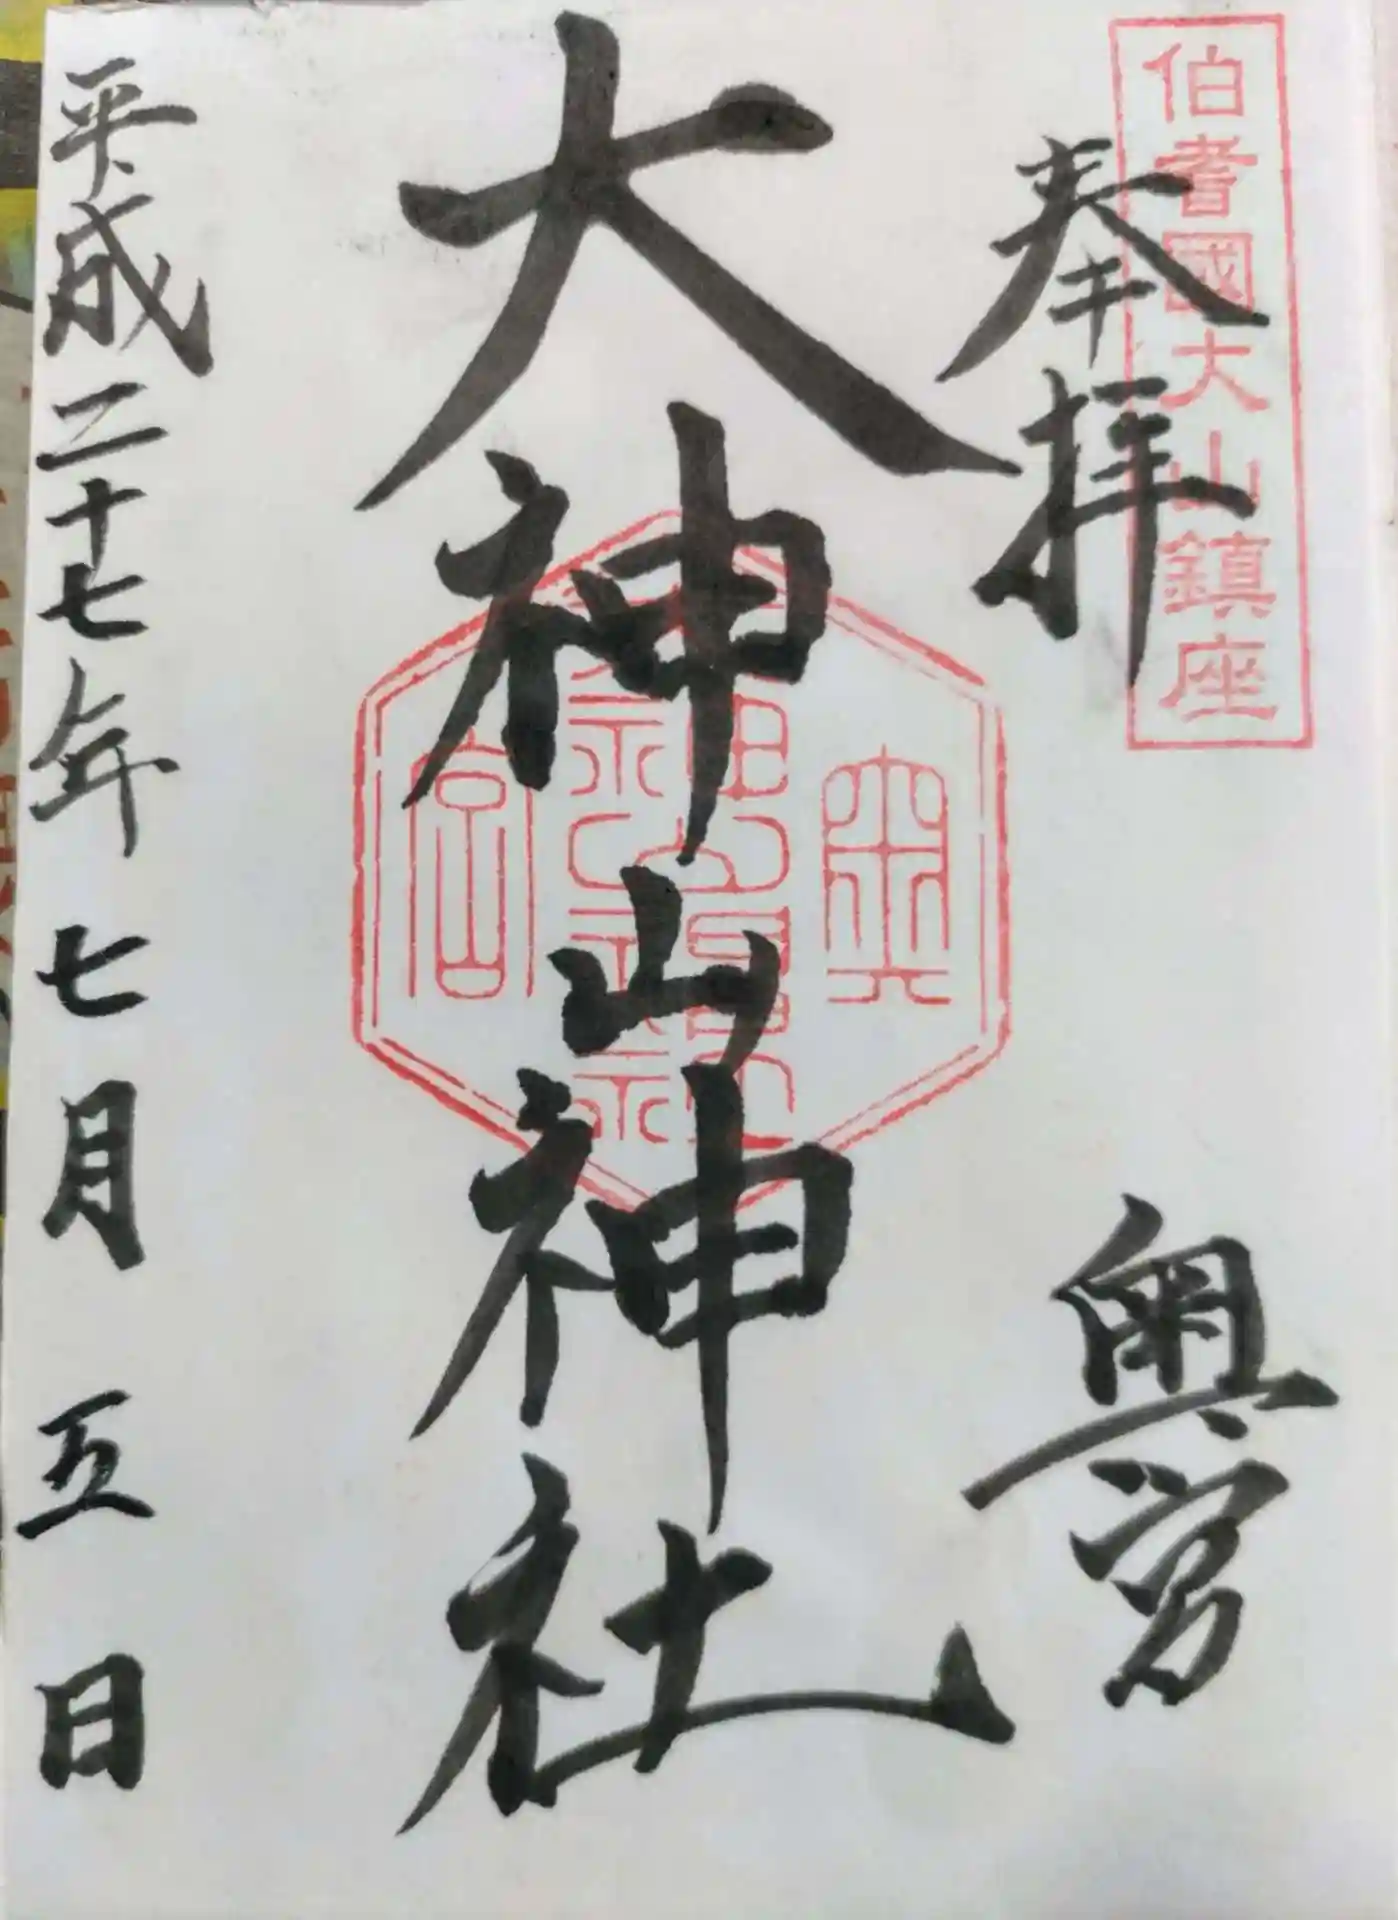 伯耆國大山鎮座
奉拝
奥宮
大神山神社
奥
宮
平成二十七年七月五日